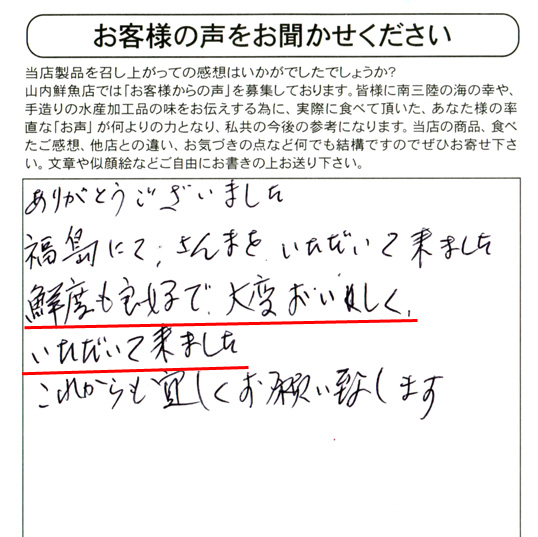 お客様の声をお聞かせください
当店製品を召し上がっての感想はいかがでしたでしょうか?
山内鮮魚店では「お客様からの声」を募集しております。皆様に南三陸の海の幸や、
手造りの水産加工品の味をお伝えする為に、実際に食べて頂いた、あなた様の率
直な「お声」が何よりの力となり、私共の今後の参考になります。当店の商品、食べ
たご感想、他店との違い、お気づきの点など何でも結構ですのでぜひお寄せ下さ
い。文章や似顔絵などご自由にお書きの上お送り下さい。
ありがとうございました
福島にて、さんまを いただいて来ました
鮮度も良好で、大変おいしく、
いただいて来ました
これからも宜しくお願い致します